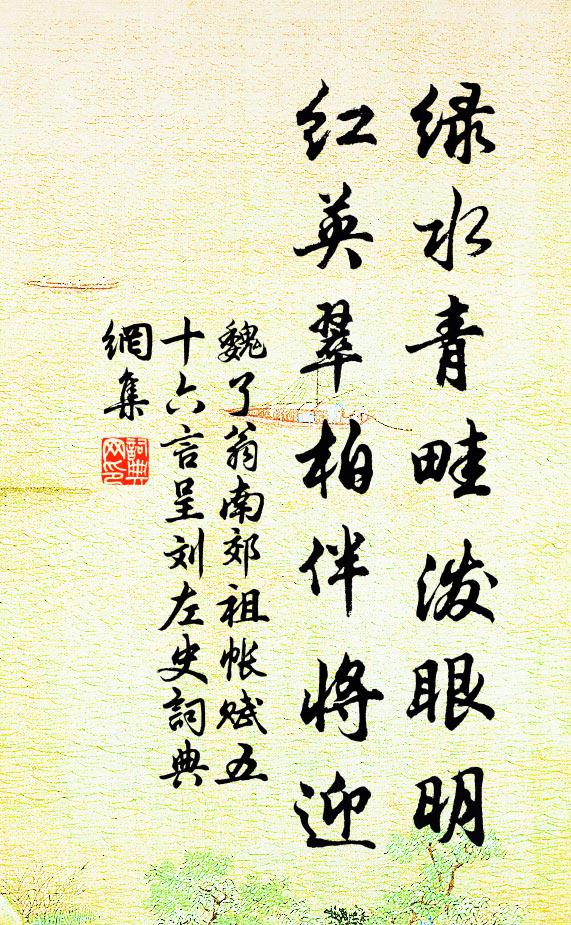 绿水青畦泼眼明
红英翠柏伴将迎
魏了翁南郊祖帐赋五
十六言呈刘左史詞典
網集
詞典
网印